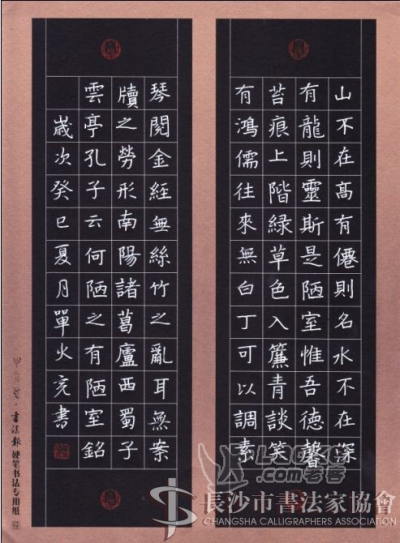 山不在高有僊則名水不在深
有龍則靈斯是陋室惟吾德馨
苔痕上階緑草色入簾青談笑
有鴻儒往來無白丁可以調素
琴閱金經無絲竹之亂耳無案
牘之勞形南陽諸葛廬西蜀子
雲亭孔子云何陋之有陋室銘
歲次癸巳夏月單火亮書
書法報硬笔书法专用纸
長沙市書法家協會
CHANGSHA CALLIGRAPHERS ASSOCIATION